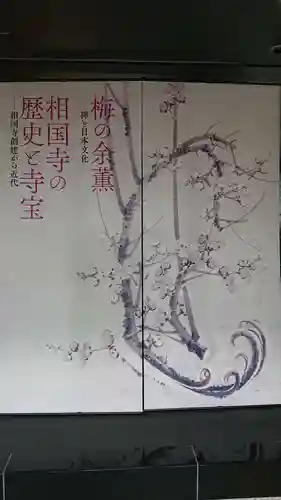 梅の余薫
禅と日本文化
相国寺の
歴史と寺宝
相国寺創建から近代